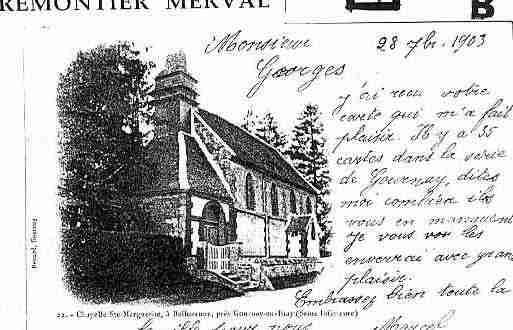 REMONTIER MERVAL
B
Monsieur
Georges
28 7br. 1903
j'ai recu votre
carte qui m'a fait
plaisir. Il y a 35
cartes dans la serie
de Gournay, dites
moi combien il
vous en manquent
Je vous les
enverrai avec grand
plaisir.
Embrassez bien toute la
22. - Chapelle Ste-Marguerite, à près Gournay-en-Bray (Seine Inférieure)
nous Marcel